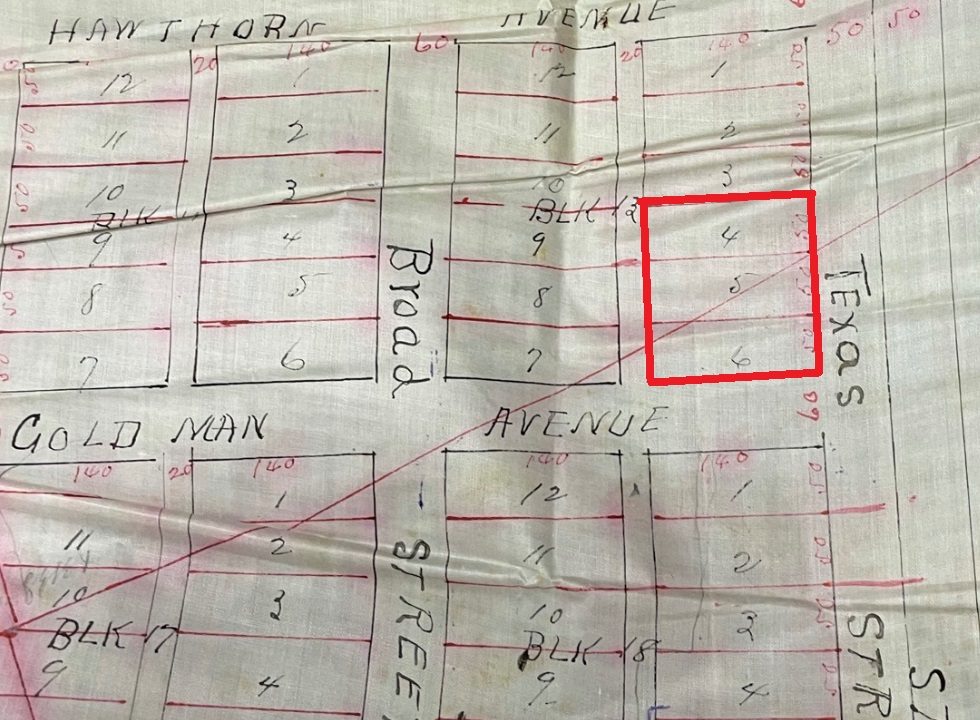 HAWTHORN AVENUE
140 60 140 20 140 50 50
20
12 1 12 1
11 2 11 2
10 3 10 3
BLK BLK 13
9 4 9 4
8 5 8 5
7 6 7 6
Broad
Texas
60
GOLDMAN AVENUE
140 20 140 140 140
1 12 1
11 2 11 2
10 3 10 3
BLK 17 BLK 18
9 4 9 4
STREE
STR
ST